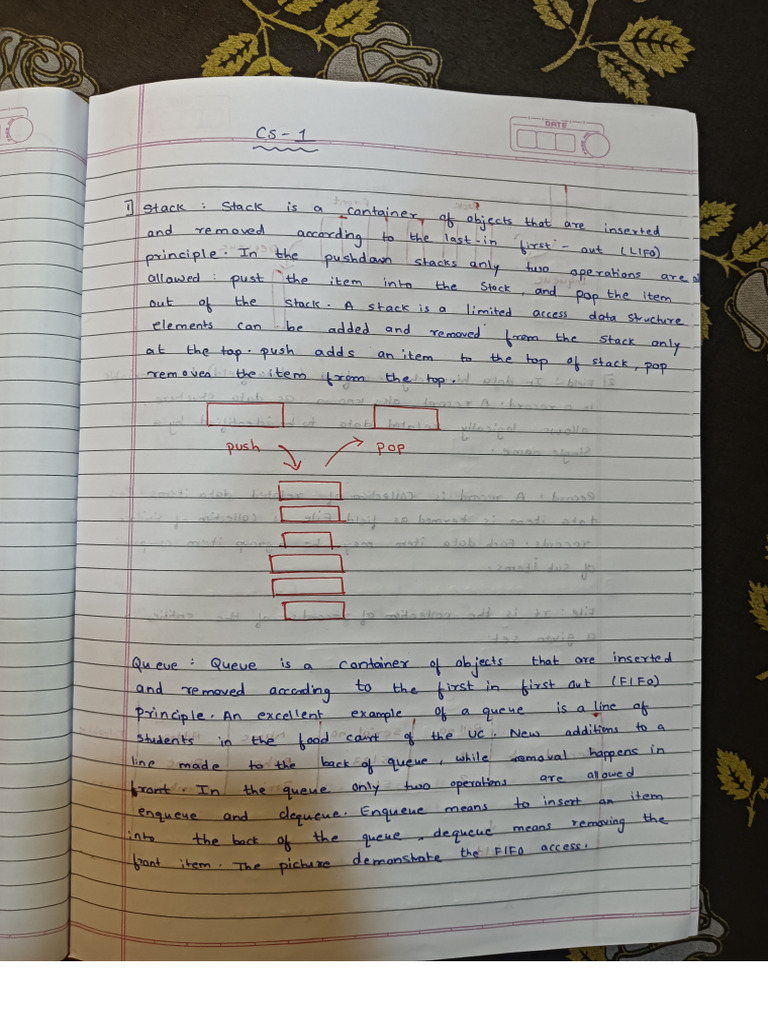 DATE
CS-1
1) Stack : Stack is a container of objects that are inserted
and removed according to the last-in first-out (LIFO)
principle. In the pushdown stacks only two operations are
allowed : pust the item into the stack, and pop the item
out of the stack. A stack is a limited access data structure
elements can be added and removed from the stack only
at the top. push adds an item to the top of stack, pop
removes the item from the top.
push pop
Queue : Queue is a container of objects that are inserted
and removed according to the first in first out (FIFO)
principle. An excellent example of a queue is a line of
students in the food court of the UC. New additions to a
line made to the back of queue, while removal happens in
front. In the queue only two operations are allowed
enqueue and dequeue. Enqueue means to insert an item
into the back of the queue, dequeue means removing the
front item. The picture demonstrate the FIFO access.